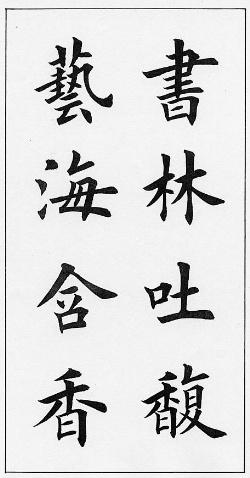 書林吐馥
藝海含香